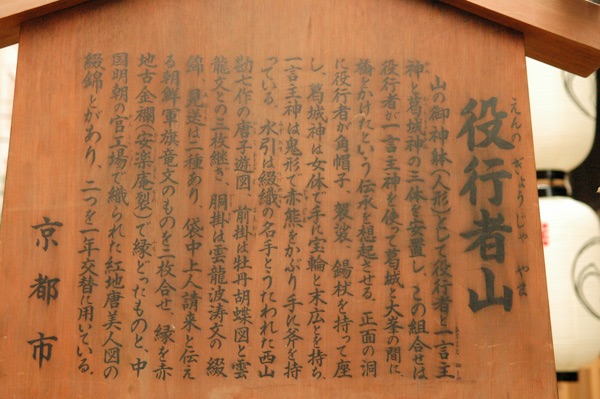 役行者山
えんのぎょうじゃやま
山の御神躰(人形)として役行者と一言主
神と葛城神の三体を安置し、この組合せは
役行者が一言主神を使って葛城と大峯の間に
橋をかけたという伝承を想起させる。正面の洞
に役行者が角帽子、袈裟、錫杖を持って座
し、葛城神は女体で手に宝輪と末広とを持ち、
一言主神は鬼形で赤熊をかぶり手に斧を持
っている。水引は綴織の名手とうたわれた西山
勘七作の唐子遊図、前掛は牡丹胡蝶図と雲
龍文との三枚継ぎ、胴掛は雲龍波涛文の綴
錦、見送は二種あり、袋中上人請来と伝え
る朝鮮軍旗竜文のものを二枚合せ、縁を赤
地古金襴(安楽庵裂)で縁どったものと、中
国明朝の宮工場で織られた紅地唐美人図の
綴錦とがあり、二つを一年交替に用いている。
京都市